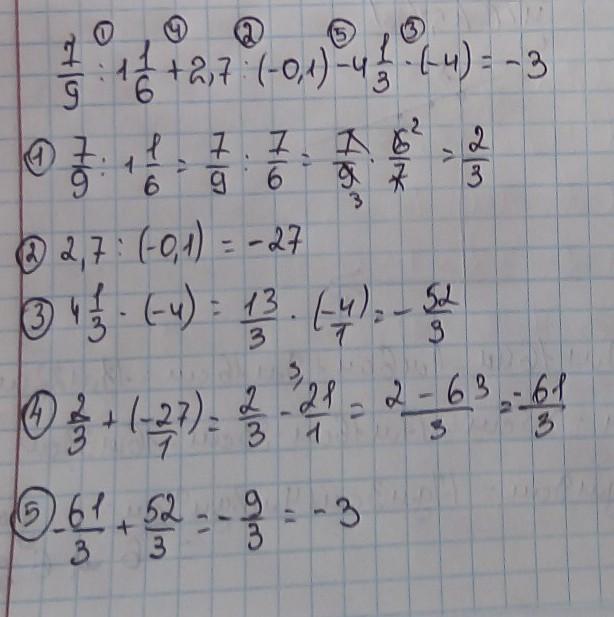 ① ④ ② ⑤ ③
7/9 : 1 1/6 + 2,7 : (-0,1) - 4 1/3 · (-4) = -3
① 7/9 : 1 1/6 = 7/9 : 7/6 = 7/9 3 · 6/7 2 = 2/3
② 2,7 : (-0,1) = -27
③ 4 1/3 · (-4) = 13/3 · (-4/1) = - 52/3
④ 2/3 + (-27/1) = 2/3 - 3 21/1 = 2 - 63/3 = -61/3
⑤ -61/3 + 52/3 = - 9/3 = -3